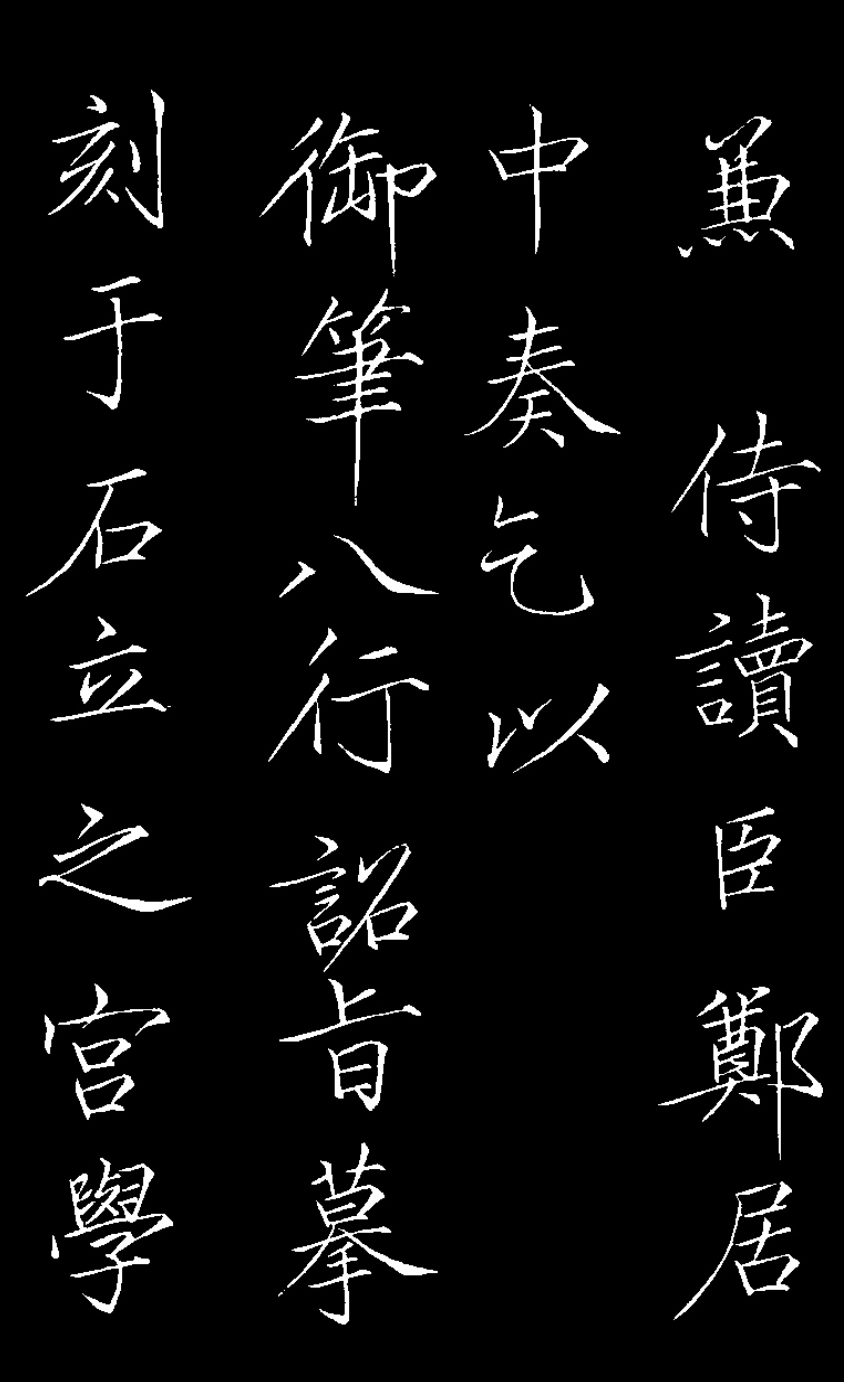 兼 侍讀臣鄭居
中奏乞以
御筆八行詔旨摹
刻于石立之宫學